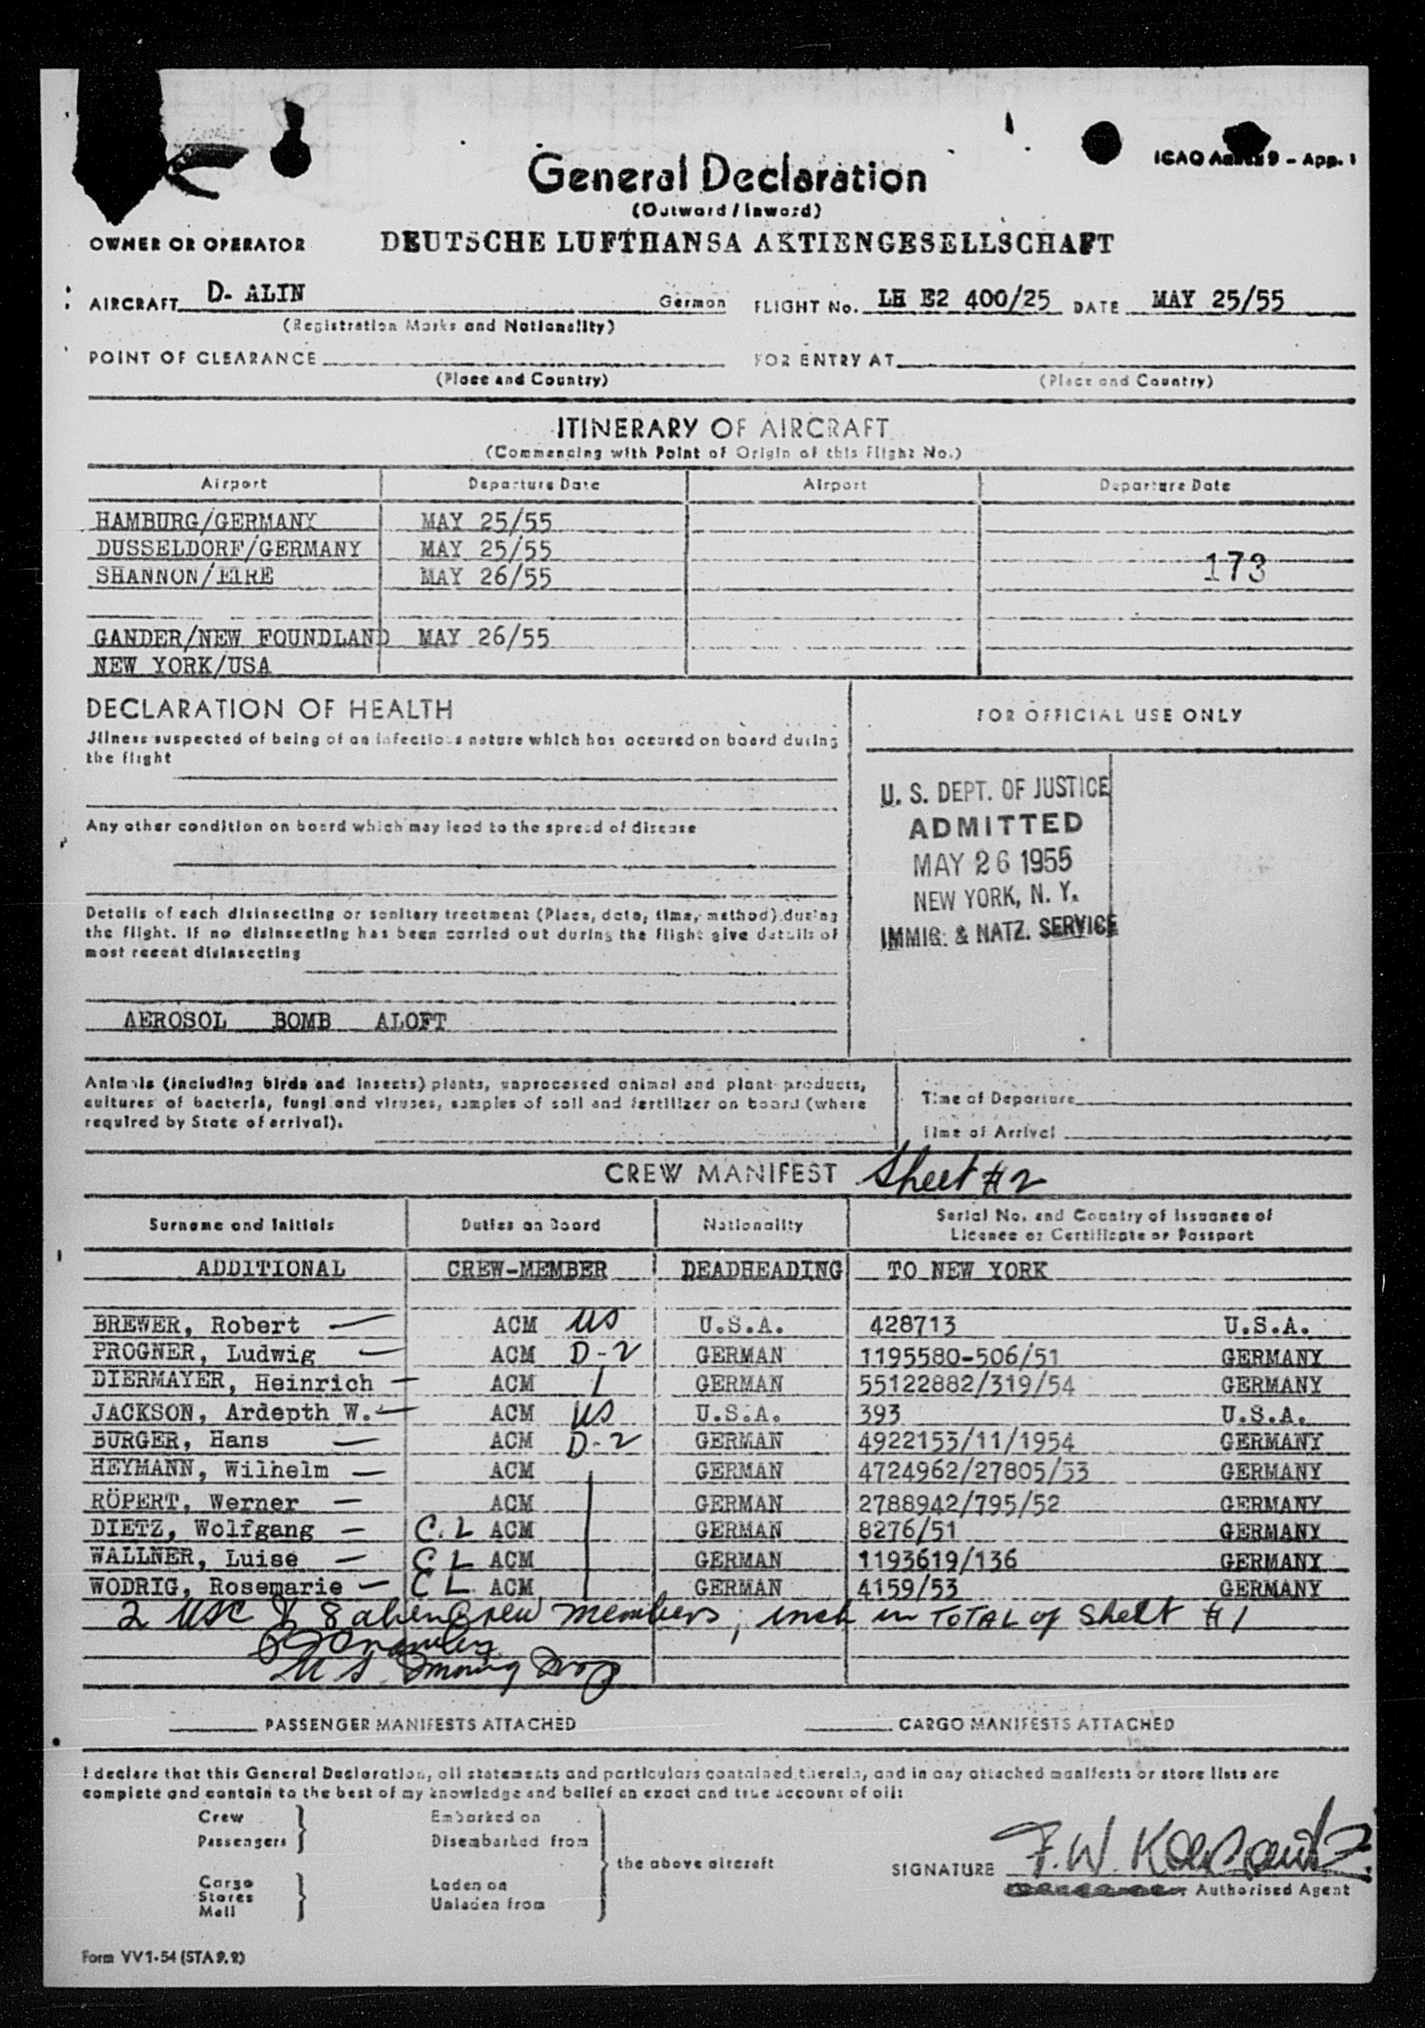 ICAO Annex 9 - App. 1
General Declaration
(Outward / Inward)
OWNER OR OPERATOR DEUTSCHE LUFTHANSA AKTIENGESELLSCHAFT
AIRCRAFT D- ALIN German FLIGHT No. LH E2 400/25 DATE MAY 25/55
(Registration Marks and Nationality)
POINT OF CLEARANCE FOR ENTRY AT
(Place and Country) (Place and Country)
ITINERARY OF AIRCRAFT
(Commencing with Point of Origin of this Flight No.)
Airport Departure Date Airport Departure Date
HAMBURG/GERMANY MAY 25/55
DUSSELDORF/GERMANY MAY 25/55
173
SHANNON/EIRE MAY 26/55
GANDER/NEW FOUNDLAND MAY 26/55
NEW YORK/USA
DECLARATION OF HEALTH
Jllness suspected of being of an infectious nature which has occured on board during
the flight
Any other condition on board which may lead to the spread of disease
Details of each disinsecting or sanitary treatment (Place, date, time, method) during
the flight. If no disinsecting has been carried out during the flight give details of
most recent disinsecting
AEROSOL BOMB ALOFT
FOR OFFICIAL USE ONLY
U. S. DEPT. OF JUSTICE
ADMITTED
MAY 26 1955
NEW YORK, N. Y.
IMMIG. & NATZ. SERVICE
Animals (including birds and insects) plants, unprocessed animal and plant products,
cultures of bacteria, fungi and viruses, samples of soil and fertilizer on board (where
required by State of arrival).
Time of Departure
Time of Arrival
CREW MANIFEST Sheet #2
Surname and Initials Duties on Board Nationality Serial No. and Country of Issuance of
Licence or Certificate or Passport
ADDITIONAL CREW-MEMBER DEADHEADING TO NEW YORK
BREWER, Robert — ACM US U.S.A. 428713 U.S.A.
PROGNER, Ludwig — ACM D-2 GERMAN 1195580-506/51 GERMANY
DIERMAYER, Heinrich — ACM GERMAN 55122882/319/54 GERMANY
JACKSON, Ardepth W. — ACM US U.S.A. 393 U.S.A.
BURGER, Hans — ACM D-2 GERMAN 4922153/11/1954 GERMANY
HEYMANN, Wilhelm — ACM GERMAN 4724962/27805/53 GERMANY
RÖPERT, Werner — ACM GERMAN 2788942/795/52 GERMANY
DIETZ, Wolfgang — C.L ACM GERMAN 8276/51 GERMANY
WALLNER, Luise — CL ACM GERMAN 1193619/136 GERMANY
WODRIG, Rosemarie — CL ACM GERMAN 4159/53 GERMANY
2 USC & 8 alien Crew members, incl in TOTAL of Sheet #1
U S. Immig Insp
PASSENGER MANIFESTS ATTACHED CARGO MANIFESTS ATTACHED
I declare that this General Declaration, all statements and particulars contained therein, and in any attached manifests or store lists are
complete and contain to the best of my knowledge and belief an exact and true account of all:
Crew Embarked on
Passengers Disembarked from
the above aircraft
Cargo Laden on
Stores
Mail Unladen from
SIGNATURE
Authorised Agent
Form VV1-54 (STA 9.2)